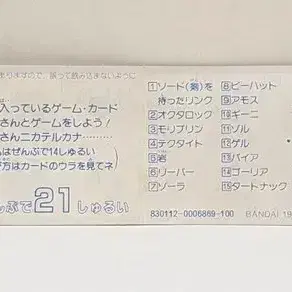 ありますので、誤って飲み込まないように
入っているゲーム・カード
さんとゲームをしよう!
さんニカテルカナ………
はぜんぶで14しゅるい
方はカードのウラを見てネ
ぶで21しゅるい
1 ソード(剣)を
持ったリンク
2 オクタロック
3 モリブリン
4 テクタイト
5 岩
6 リーバー
7 ゾーラ
8 ピーハット
9 アモス
10 ギーニ
11 ゾル
12 ゲル
13 バイア
14 ゴーリア
15 タートナック
830112-0006869-100
BANDAI 19